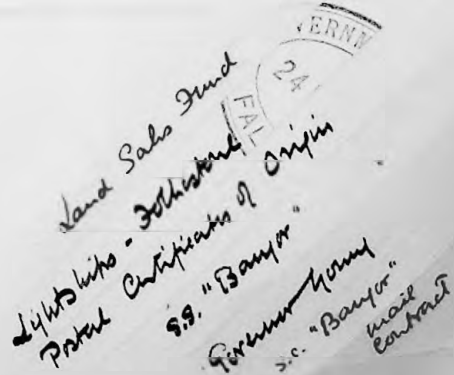 VERNM
24
FAL
Land Sales Fund
Lightships - Folkestone
Postal Certificates of Origin
S.S. "Bangor"
Governor Young
s.c. "Bangor"
mail
contract